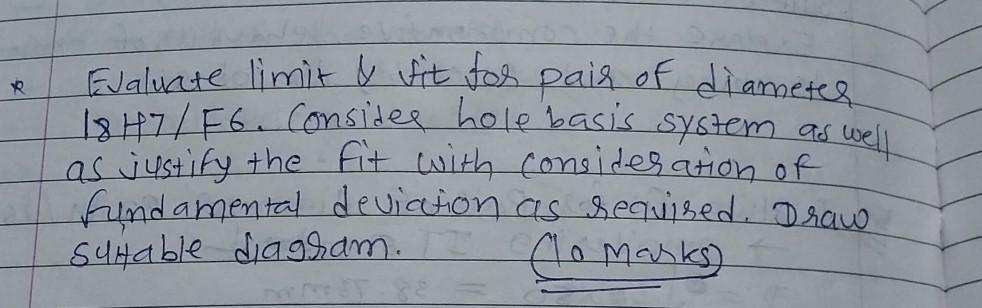 * Evaluate limit & fit for pair of diameter
18 H7/F6. Consider hole basis system as well
as justify the fit with consideration of
fundamental deviation as required. Draw
suitable diagram. (10 Marks)